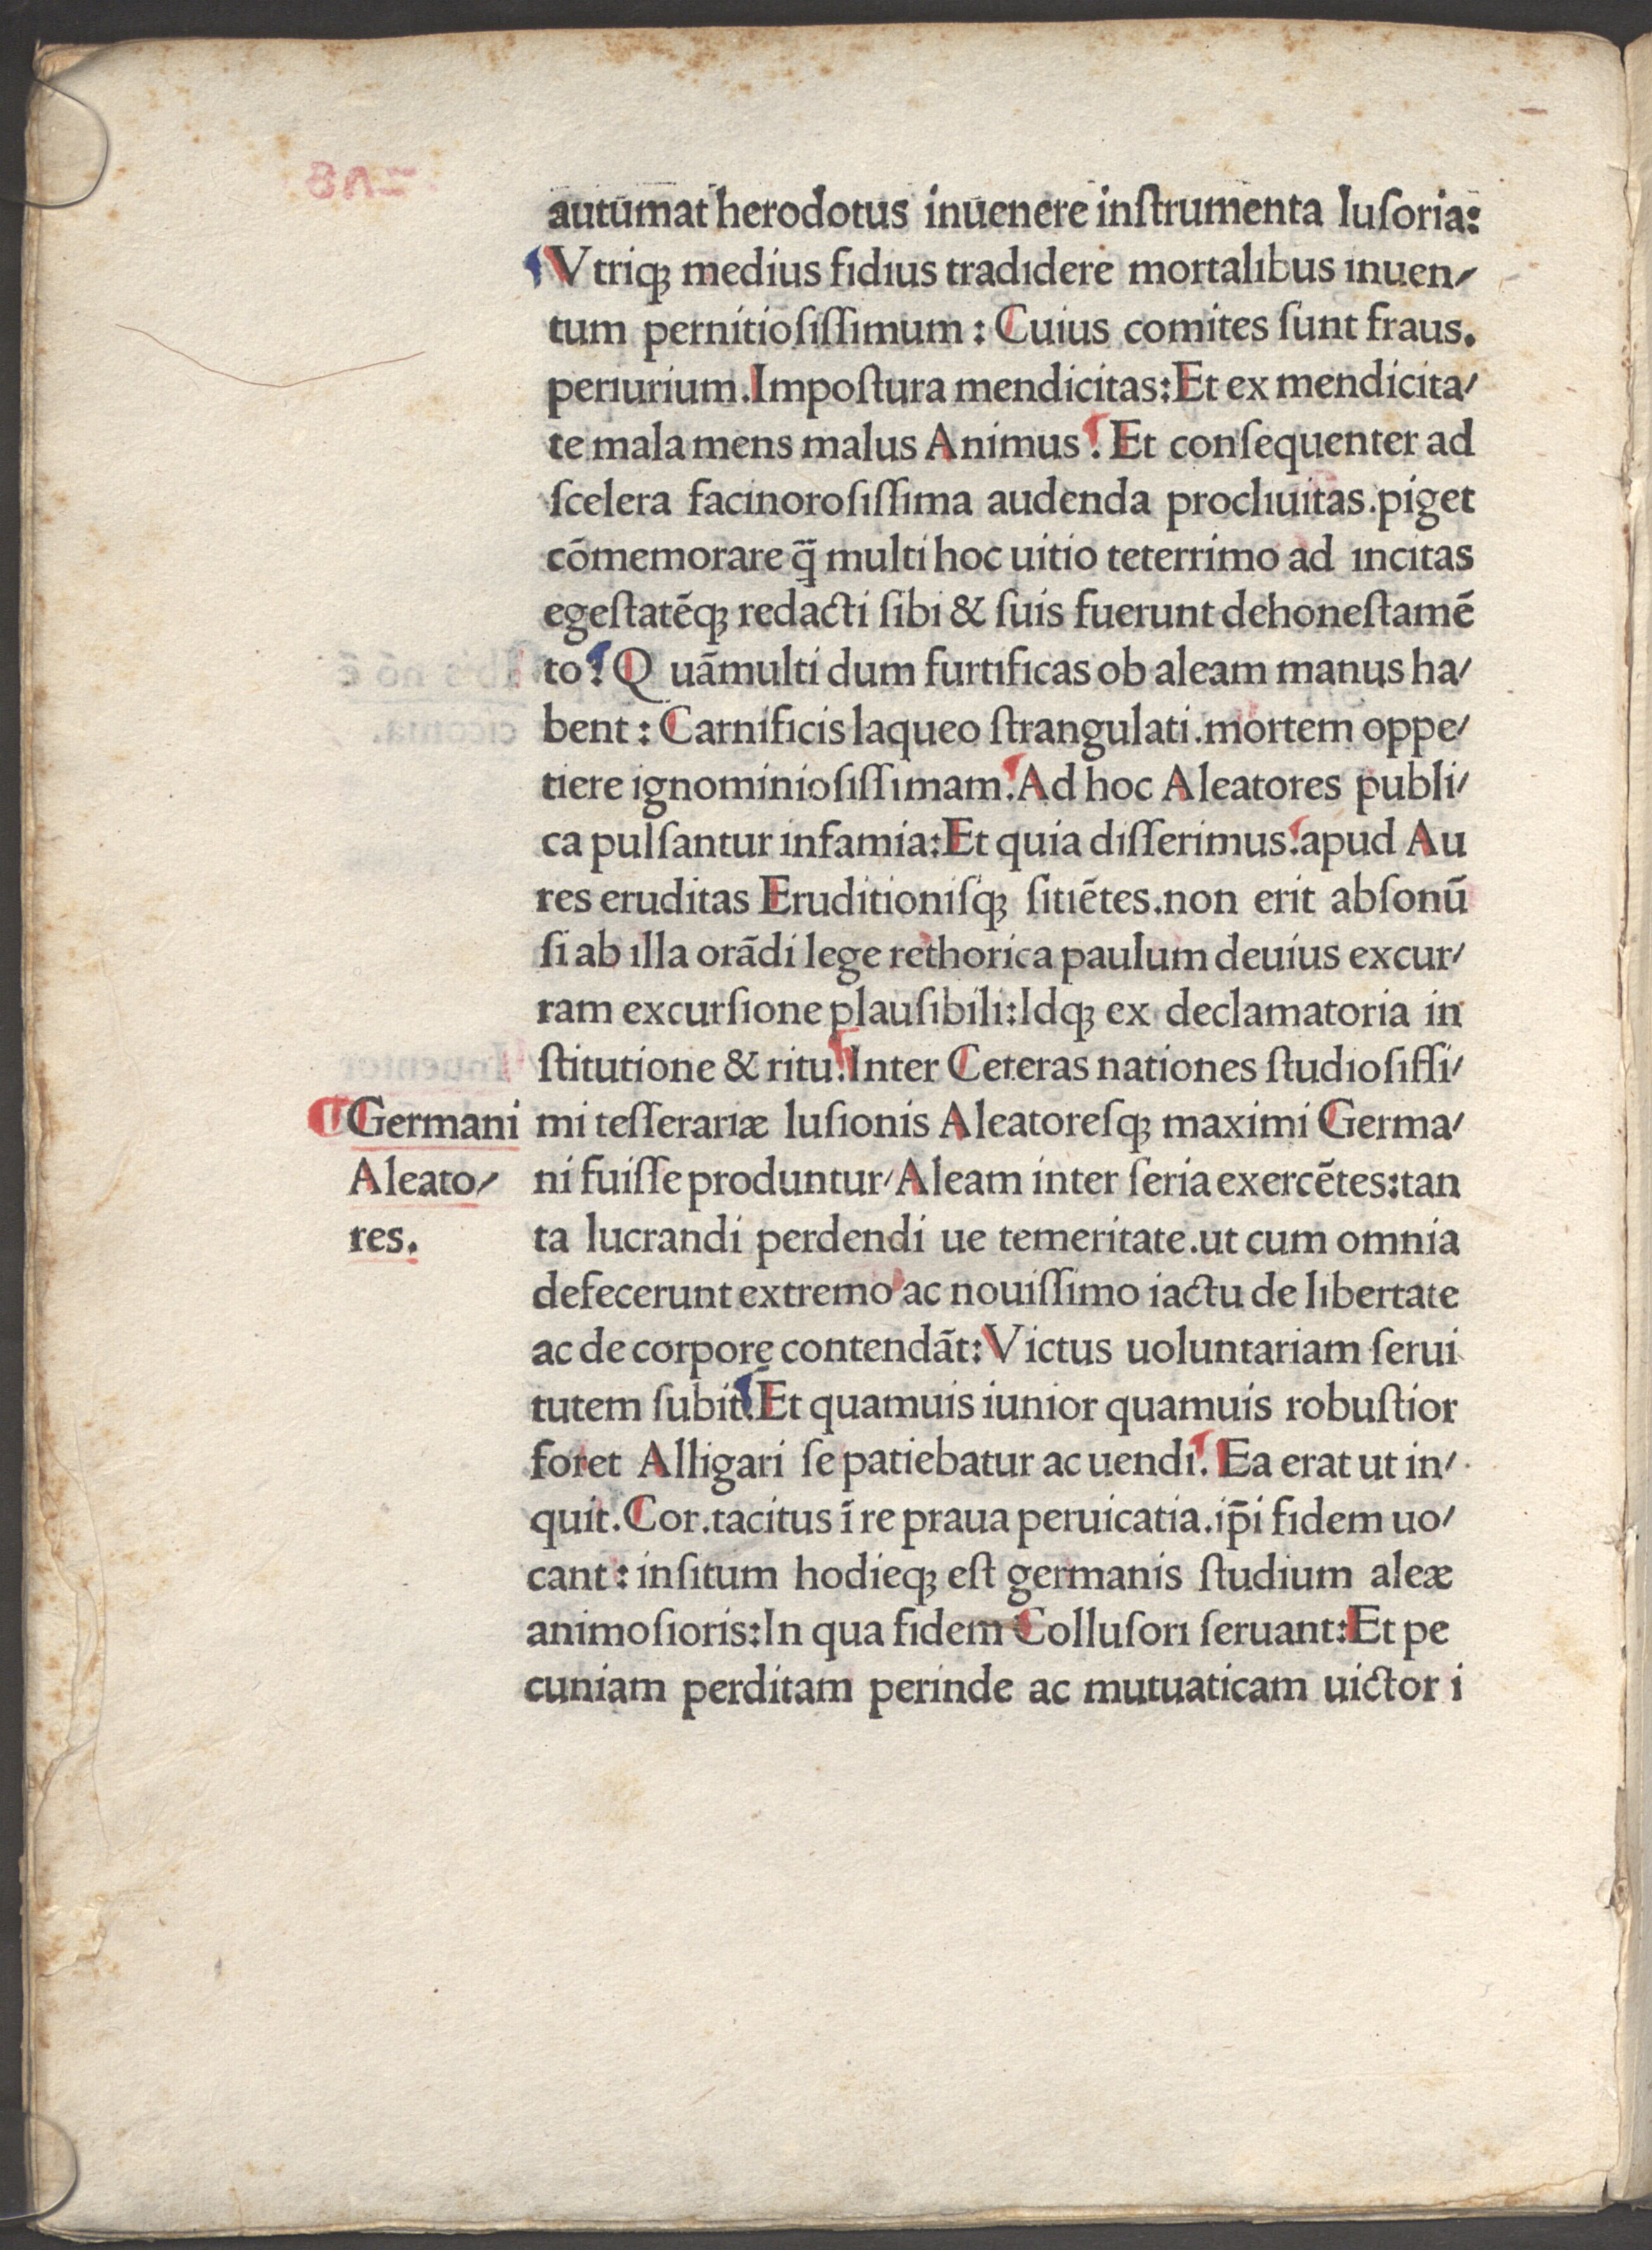 autumat herodotus inuenere inſtrumenta luſoria:
Vtriqꝫ medius fidius tradidere mortalibus inuen/
tum pernitioſiſſimum: Cuius comites ſunt fraus.
periurium. Impoſtura mendicitas: Et ex mendicita/
te mala mens malus Animus. Et conſequenter ad
ſcelera facinoroſiſſima audenda procliuitas. piget
cōmemorare q̄ multi hoc uitio teterrimo ad incitas
egeſtatēqꝫ redacti ſibi & ſuis fuerunt dehoneſtamē
to: Q uāmulti dum furtificas ob aleam manus ha/
bent: Carnificis laqueo ſtrangulati. mortem oppe/
tiere ignominioſiſſimam. Ad hoc Aleatores publi/
ca pulſantur infamia: Et quia diſſerimus. apud Au
res eruditas Eruditioniſqꝫ ſitiētes. non erit abſonū
ſi ab illa orādi lege rethorica paulum deuius excur/
ram excurſione plauſibili: Idqꝫ ex declamatoria in
ſtitutione & ritu. Inter Ceteras nationes ſtudioſiſſi/
Germani
Aleato/
res.
mi teſſerariæ luſionis Aleatoreſqꝫ maximi Germa/
ni fuiſſe produntur/ Aleam inter ſeria exercētes: tan
ta lucrandi perdendi ue temeritate. ut cum omnia
defecerunt extremo ac nouiſſimo iactu de libertate
ac de corpore contendāt: Victus uoluntariam ſerui
tutem ſubit. Et quamuis iunior quamuis robuſtior
foret Alligari ſe patiebatur ac uendi. Ea erat ut in/
quit. Cor. tacitus ī re praua peruicatia. ip̄i fidem uo/
cant: inſitum hodieqꝫ eſt germanis ſtudium aleæ
animoſioris: In qua fidem Colluſori ſeruant: Et pe
cuniam perditam perinde ac mutuaticam uictor i